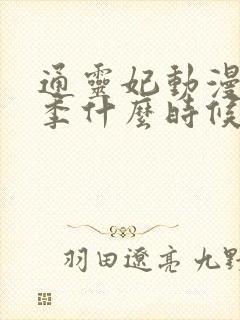 通靈妃動漫
季什麼時候
羽田遼亮 九野